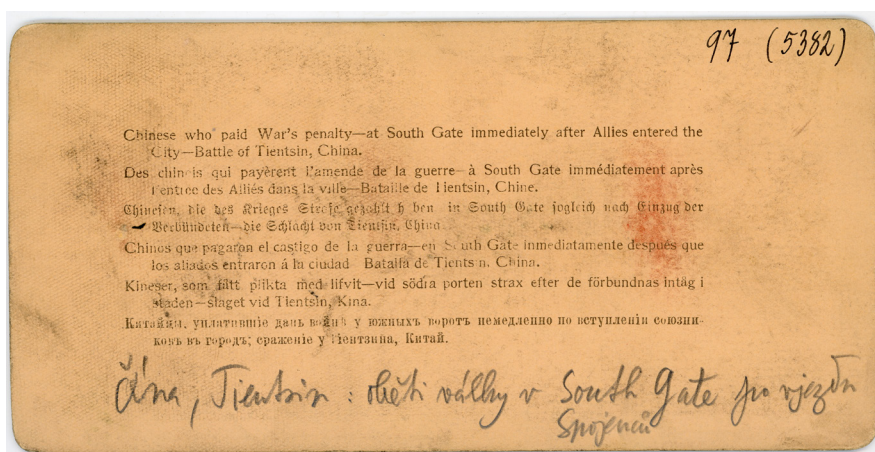 97 (5382)
Chinese who paid War's penalty—at South Gate immediately after Allies entered the
City—Battle of Tientsin, China.
Des chinois qui payèrent l'amende de la guerre—à South Gate immédiatement après
l'entrée des Alliés dans la ville—Bataille de Tientsin, Chine.
Chinesen, die des Krieges Strafe gezahlt haben in South Gate sogleich nach Einzug der
Verbündeten—die Schlacht von Tientsin, China.
Chinos que pagaron el castigo de la guerra—en South Gate inmediatamente después que
los aliados entraron á la ciudad Batalla de Tientsin, China.
Kineser, som fått plikta med lifvit—vid södra porten strax efter de förbundnas intåg i
staden—slaget vid Tientsin, Kina.
Китайцы, уплатившіе дань войнѣ у южныхъ воротъ немедленно по вступленіи союзни-
ковъ въ городъ; сраженіе у Тіентзина, Китай.
Čína, Tientsin : oběti války v South Gate po vjezdu
Spojenců